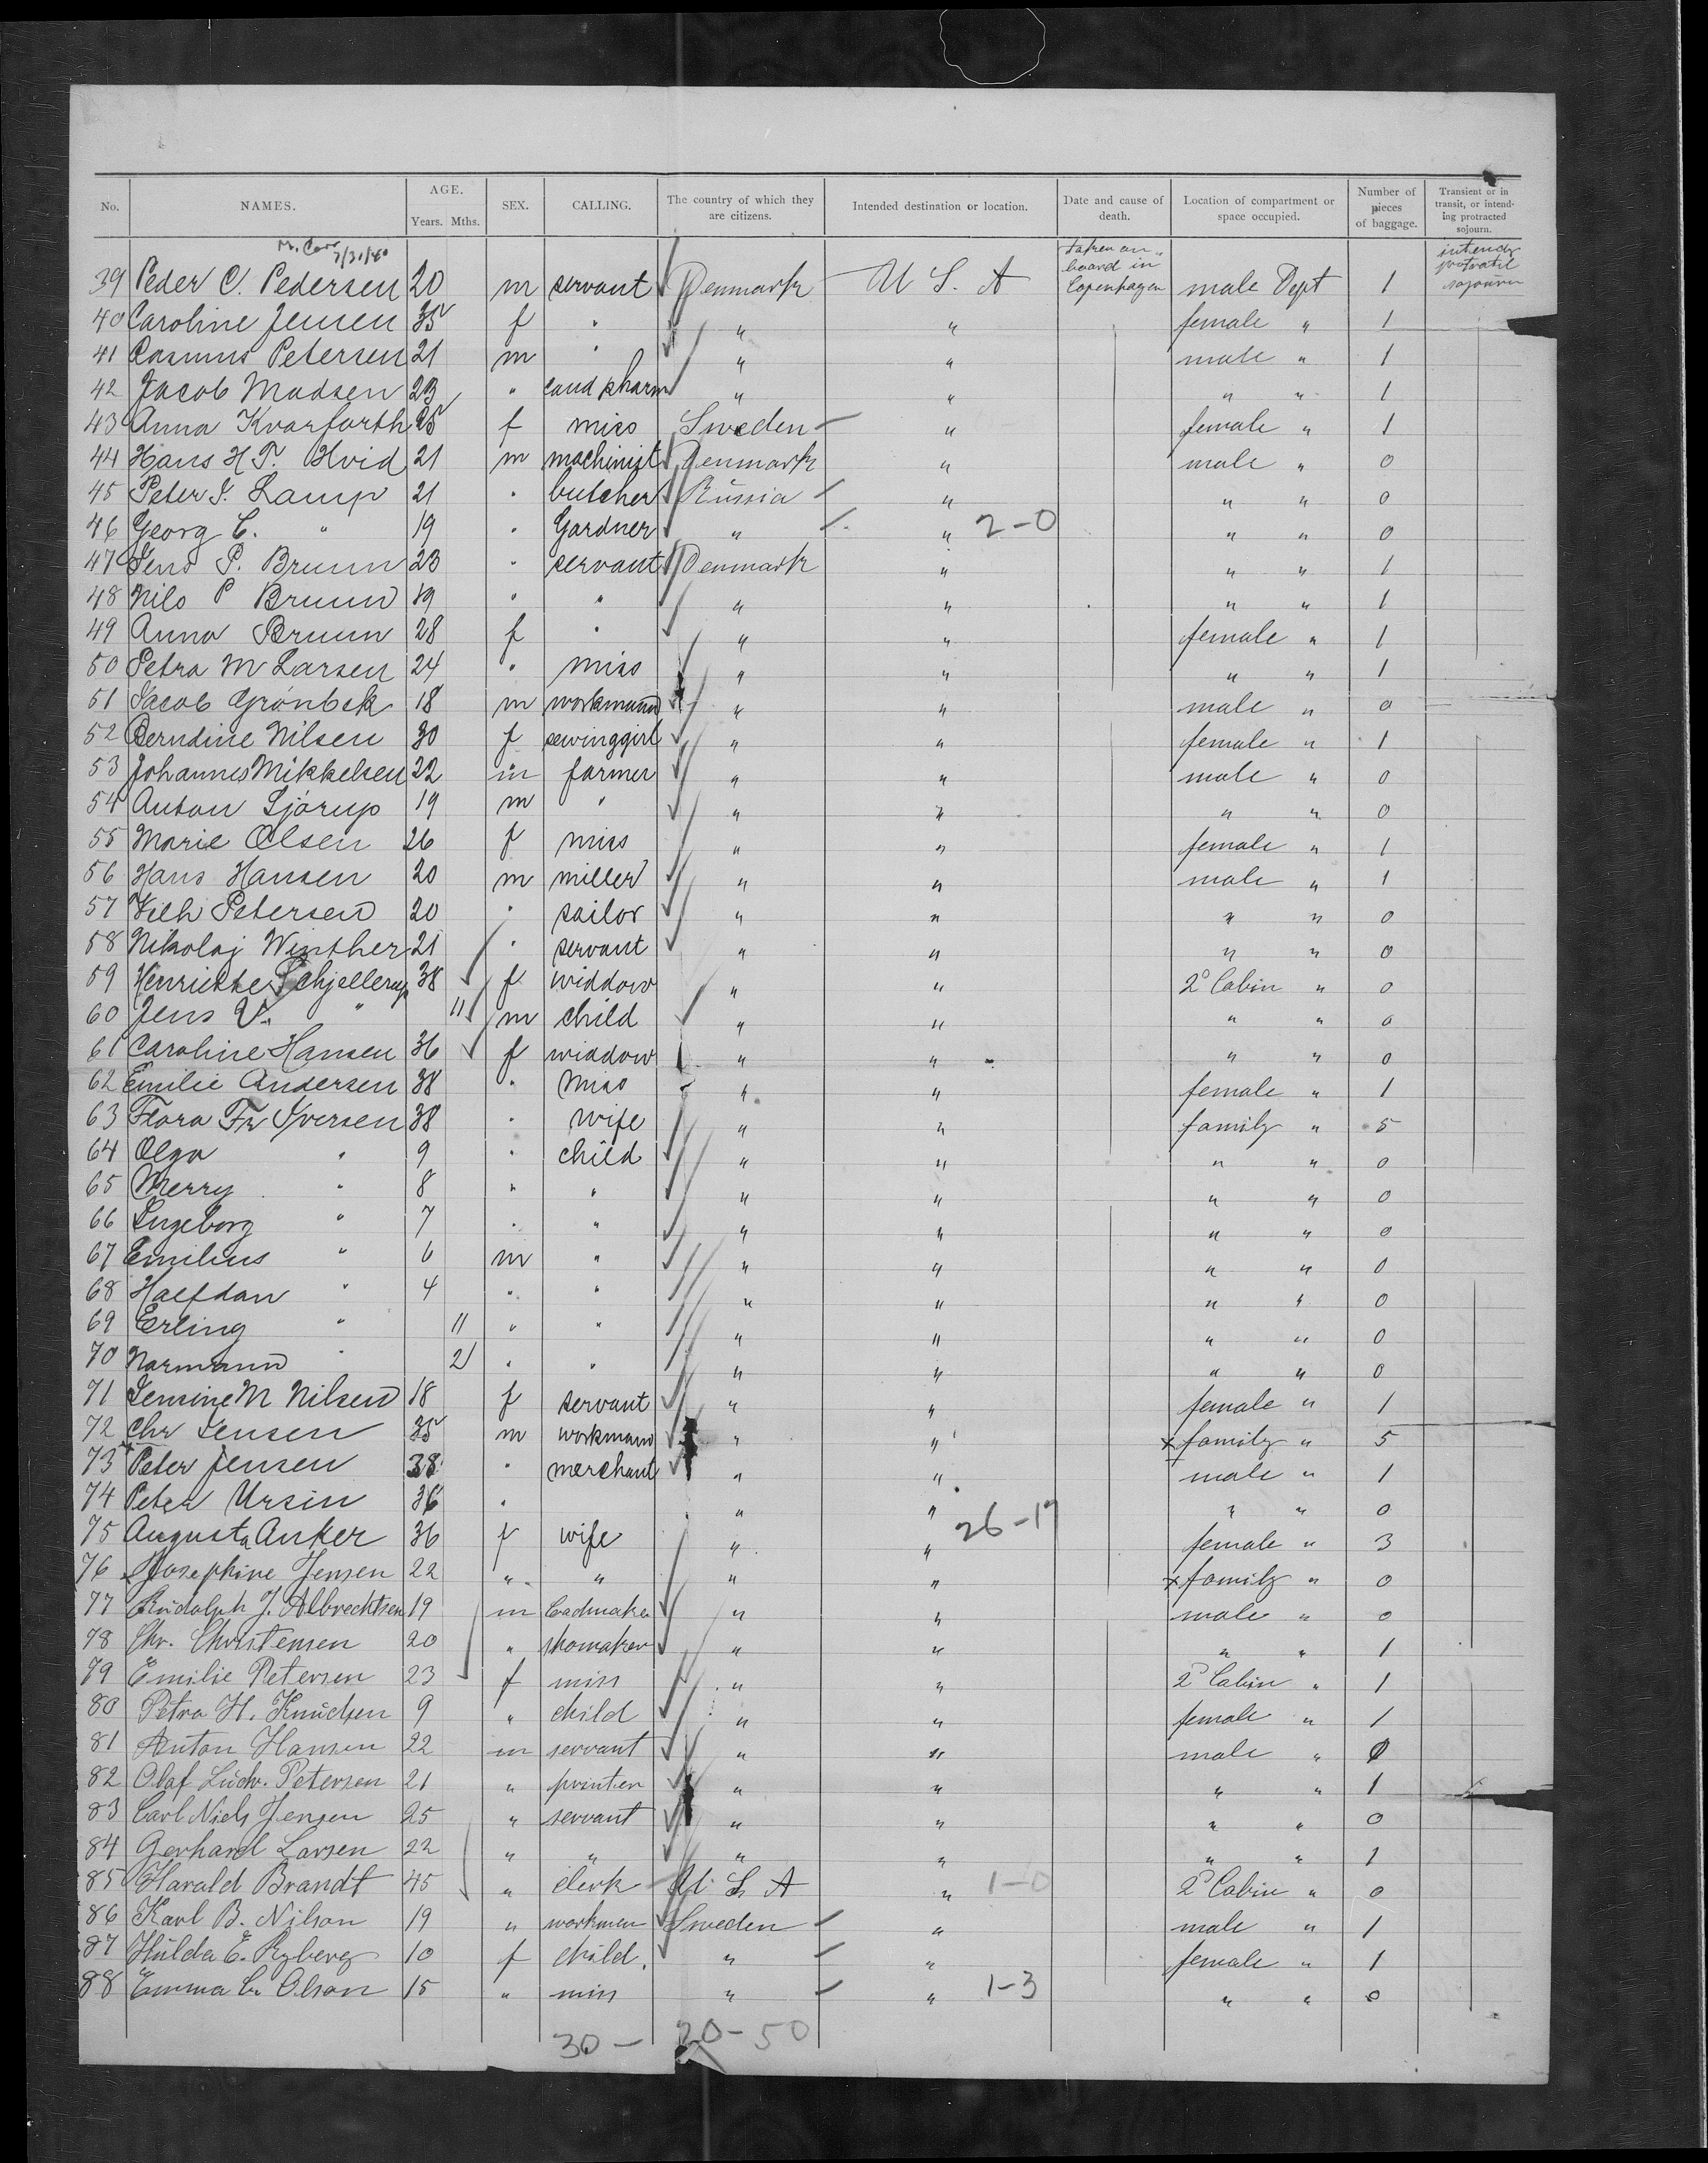 No. NAMES. AGE. Years. Mths. SEX. CALLING. The country of which they are citizens. Intended destination or location. Date and cause of death. Location of compartment or space occupied. Number of pieces of baggage. Transient or in transit, or intending protracted sojourn.
7/31/40
39 Peder C. Pedersen 20 m servant Denmark U S. A taken on board in Copenhagen male Dept 1 intends protracted sojourn
40 Caroline Jensen 35 f " " " female " 1
41 Rasmus Petersen 21 m " " " male " 1
42 Jacob Madsen 23 " cand pharm " " " " 1
43 Anna Kvarforth 25 f miss Sweden " female " 1
44 Hans H P. Hvid 21 m machinist Denmark " male " 0
45 Peter J. Lamp 21 " butcher Russia " " " 0
46 Georg C. " 19 " Gardner " " 2-0 " " 0
47 Jens P. Bruun 23 " servant Denmark " " " 1
48 Nils P Bruun 19 " " " " " " 1
49 Anna Bruun 28 f " " " female " 1
50 Petra M Larsen 24 " miss " " " " 1
51 Jacob Grönbek 18 m workmand " " male " 0
52 Berndine Nilsen 30 f sewinggirl " " female " 1
53 Johannes Mikkelsen 22 m farmer " " male " 0
54 Anton Sjörup 19 m " " " " " 0
55 Marie Olsen 26 f miss " " female " 1
56 Hans Hansen 20 m miller " " male " 1
57 Vilh Petersen 20 " sailor " " " " 0
58 Nikolaj Winther 21 " servant " " " " 0
59 Henriette Schjellerup 38 f widdow " " 2° Cabin " 0
60 Jens V. " 11 m child " " " " 0
61 Caroline Hansen 36 f widdow " " " " 0
62 Emilie Andersen 38 " Miss " " female " 1
63 Flora Fr Iversen 38 " wife " " family " 5
64 Olga " 9 " child " " " " 0
65 Merry " 8 " " " " " " 0
66 Ingeborg " 7 " " " " " " 0
67 Emilius " 6 m " " " " " 0
68 Halfdan " 4 " " " " " " 0
69 Erling " 11 " " " " " " 0
70 Normann " 2 " " " " " " 0
71 Jensine M Nilsen 18 f servant " " female " 1
72 Chr Jensen 35 m workmand " " x family " 5
73 Peter Jensen 38 " merchant " " male " 1
74 Peter Ursin 36 " " " " " 0
75 Augusta Anker 36 f wife " " 26-17 female " 3
76 Josephine Jensen 22 " " " " x family " 0
77 Rudolph J. Albrechtsen 19 m " " male " 0
78 Chr. Christensen 20 " shomaker " " " " 1
79 Emilie Petersen 23 f miss " " 2° Cabin " 1
80 Petra H. Knudsen 9 " child " " female " 1
81 Anton Hansen 22 m servant " " male "
82 Olaf Ludv. Petersen 21 " printer " " " " 1
83 Carl Niels Jensen 25 " servant " " " " 0
84 Gerhard Larsen 22 " " " " " " 1
85 Harald Brandt 45 " clerk U. S. A " 1-0 2° Cabin " 0
86 Karl B. Nilson 19 " workman Sweden " male " 1
87 Hulda E. Ryberg 10 f child. " " female " 1
88 Emma C. Olson 15 " miss " " 1-3 " " 0
30 - 20 - 50